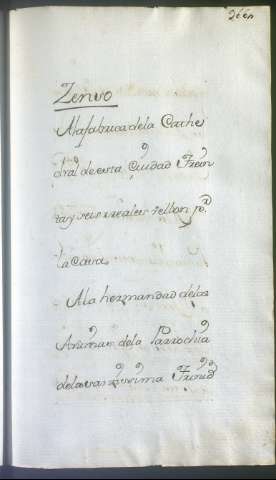 Zenso
A la fabrica de la Cathe
dral de esta Ciudad Trein
ta y seis reales vellon pr.
la Casa
A la hermandad de las
Animas de la Parrochia
de la santissima Trinid